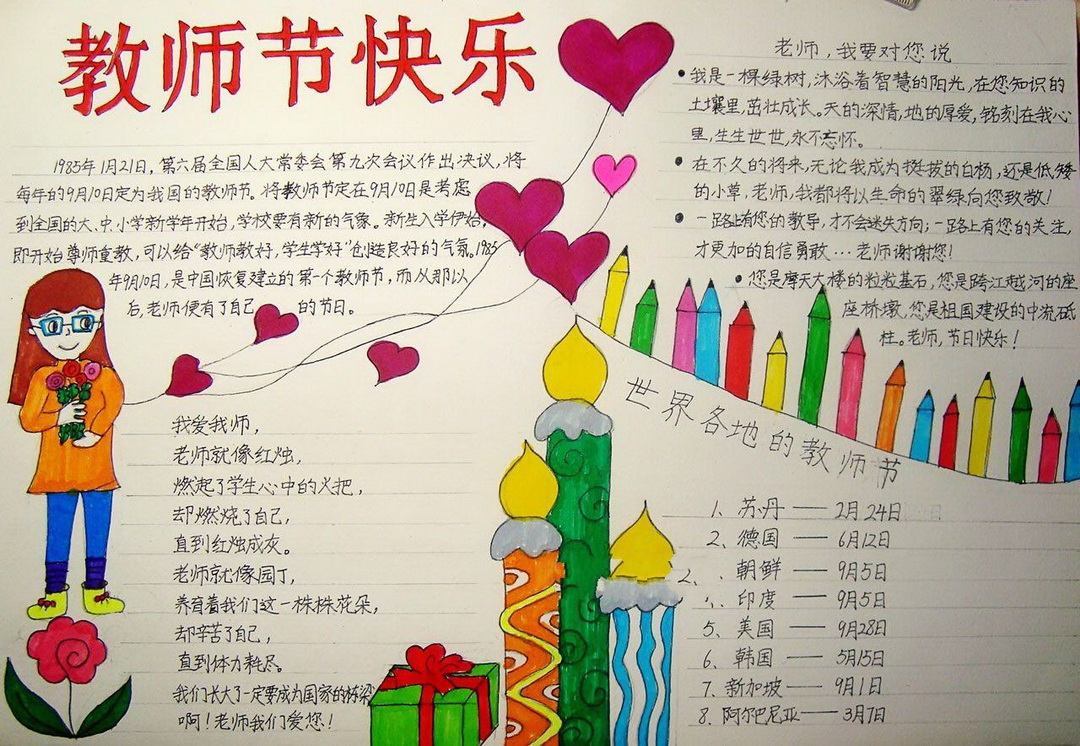 教师节快乐
1985年1月21日,第六届全国人大常委会第九次会议作出决议,将
每年的9月10日定为我国的教师节。将教师节定在9月10日是考虑
到全国的大、中、小学新学年开始,学校要有新的气象。新生入学伊始,
即开始尊师重教,可以给“教师教好,学生学好”创造良好的气氛。1985
年9月10日,是中国恢复建立的第一个教师节,而从那以
后,老师便有了自己 的节日。
我爱我师,
老师就像红烛,
燃起了学生心中的火把,
却燃烧了自己,
直到红烛成灰。
老师就像园丁,
养育着我们这一株株花朵,
却辛苦了自己,
直到体力耗尽。
我们长大了一定要成为国家的栋梁
啊!老师我们爱您!
老师,我要对您说
•我是一棵绿树,沐浴着智慧的阳光,在您知识的
土壤里,茁壮成长。天的深情,地的厚爱,铭刻在我心
里,生生世世,永不忘怀。
•在不久的将来,无论我成为挺拔的白杨,还是低矮
的小草,老师,我都将以生命的翠绿向您致敬!
•一路上有您的教导,才不会迷失方向;一路上有您的关注,
才更加的自信勇敢…老师谢谢您!
•您是摩天大楼的粒粒基石,您是跨江越河的座
座桥墩,您是祖国建设的中流砥
柱。老师,节日快乐!
世界各地的教师节
1、苏丹——2月24日
2、德国——6月12日
朝鲜——9月5日
印度——9月5日
5、美国——9月28日
6、韩国——5月15日
7、新加坡——9月1日
8、阿尔巴尼亚——3月7日